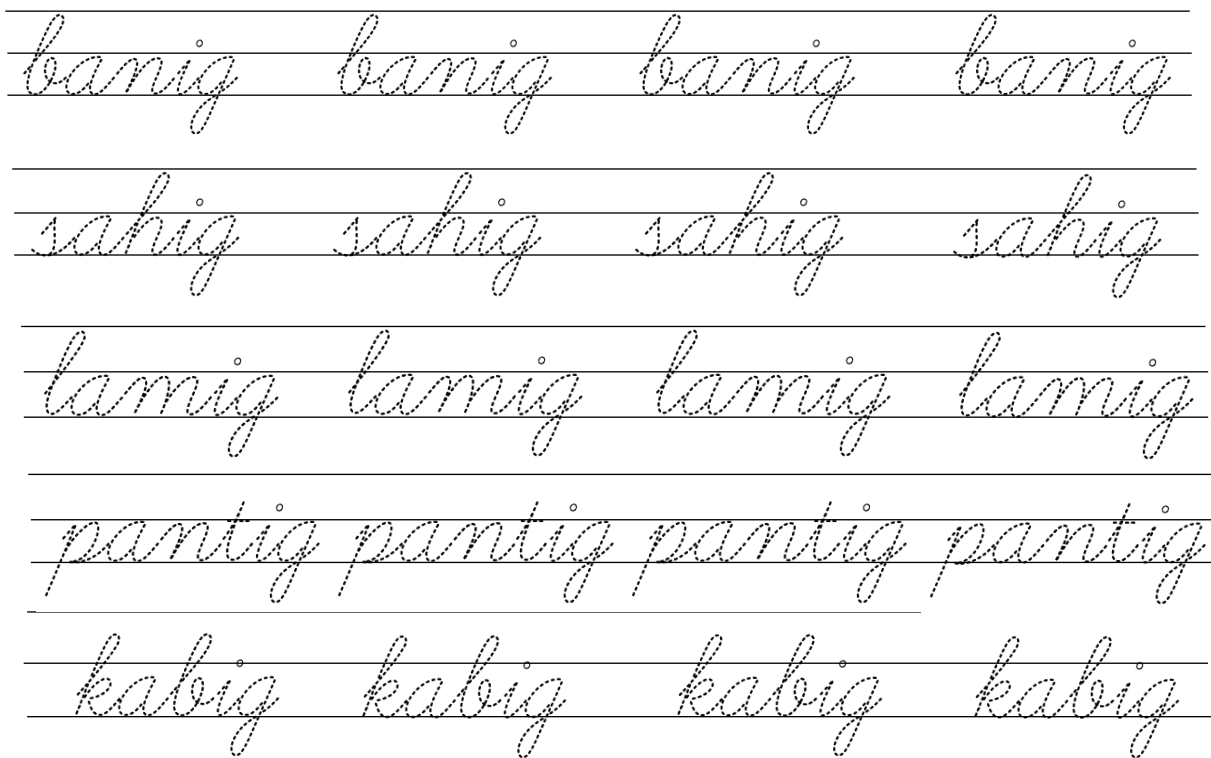 banig banig banig banig
sahig sahig sahig sahig
lamig lamig lamig lamig
pantig pantig pantig pantig
kabig kabig kabig kabig